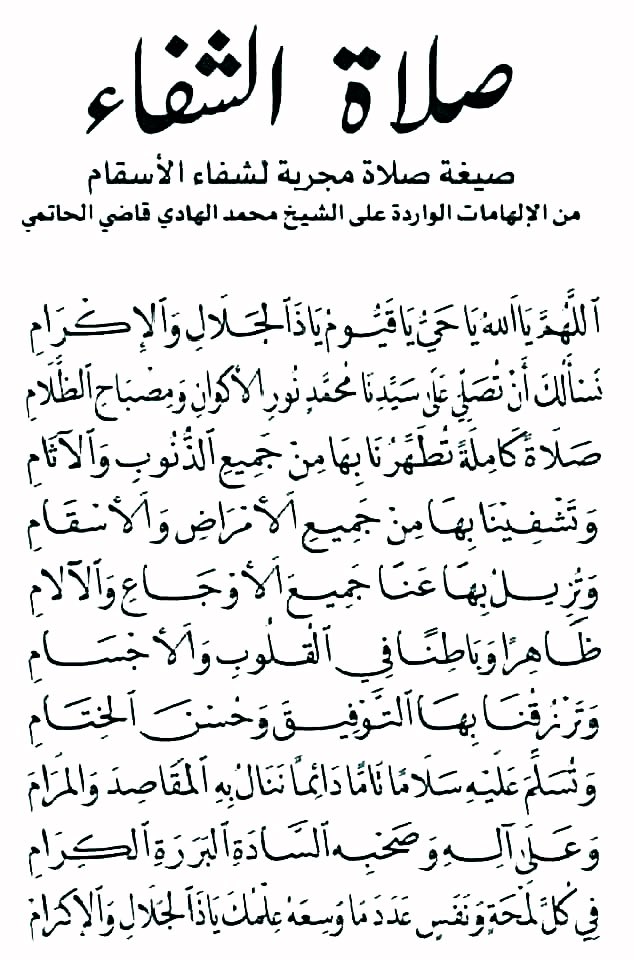 صلاة الشفاء
صيغة صلاة مجربة لشفاء الأسقام
من الإلهامات الواردة على الشيخ محمد الهادي قاضي الحاتمي
اَللَّهُمَّ يَا اَللهُ يَا حَيُّ يَا قَيُّومُ يَاذَا اَلْجَلَالِ وَاَلْإِكْرَامِ
نَسْأَلُكَ أَنْ تُصَلِّيَ عَلَى سَيِّدِنَا مُحَمَّدٍ نُورِ اَلْأَكْوَانِ وَمِصْبَاحِ اَلظَّلَامِ
صَلَاةً كَامِلَةً تُطَهِّرُنَا بِهَا مِنْ جَمِيعِ اَلذُّنُوبِ وَاَلْآثَامِ
وَتَشْفِينَا بِهَا مِنْ جَمِيعِ اَلْأَمْرَاضِ وَاَلْأَسْقَامِ
وَتُزِيلُ بِهَا عَنَّا جَمِيعَ اَلْأَوْجَاعِ وَاَلْآلَامِ
ظَاهِرًا وَبَاطِنًا فِي اَلْقُلُوبِ وَاَلْأَجْسَامِ
وَتَرْزُقُنَا بِهَا اَلتَّوْفِيقَ وَحُسْنَ اَلْخِتَامِ
وَتُسَلِّمَ عَلَيْهِ سَلَامًا تَامًّا دَائِمًا نَنَالُ بِهِ اَلْمَقَاصِدَ وَاَلْمَرَامَ
وَعَلَى آلِهِ وَصَحْبِهِ اَلسَّادَةِ اَلْبَرَرَةِ اَلْكِرَامِ
فِي كُلِّ لَمْحَةٍ وَنَفَسٍ عَدَدَ مَا وَسِعَهُ عِلْمُكَ يَاذَا اَلْجَلَالِ وَاَلْإِكْرَامْ